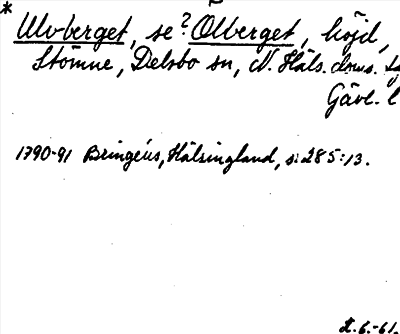 * Ulv-berget, se ? Ölberget, höjd,
Stömne, Delsbo sn, N. Häls. doms.
Gävl. l
1790-91 Bringéus, Hälsingland, s. 285:13.
6.-61.